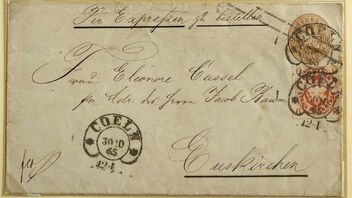 Per Expressen zu bestellen
COELN
Frau Eleonore Cassel
COELN
65
12-1
per Adr. des Herrn Jacob Baum
COELN
30 10
65
12-1
Euskirchen